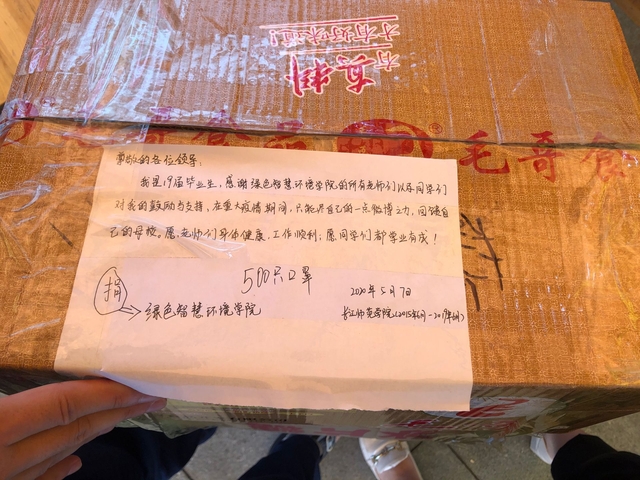 有真料
才有好味道!
毛哥食
尊敬的各位领导:
我是19届毕业生,感谢绿色智慧环境学院的所有老师们以及同学们
对我的鼓励与支持,在重大疫情期间,只能尽自己的一点微薄之力,回馈自
己的母校。愿老师们身体健康、工作顺利;愿同学们都学业有成!
500只口罩
捐
2020年5月7日
绿色智慧环境学院
长江师范学院